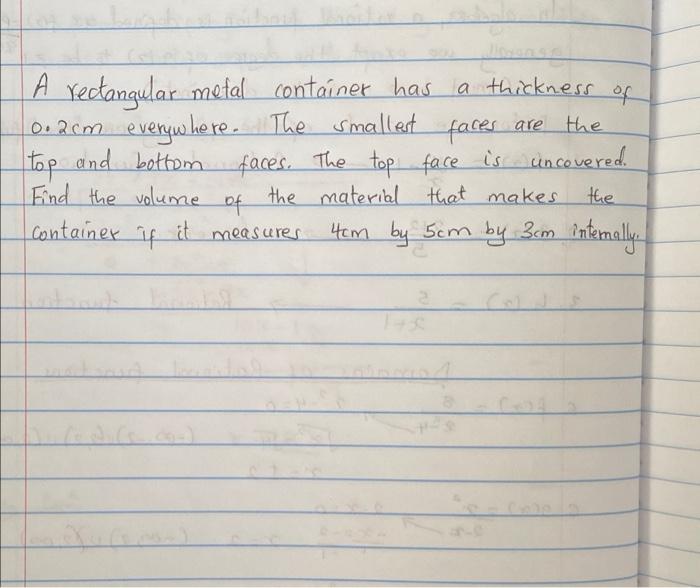 A rectangular metal container has a thickness of
0.2cm everywhere. The smallest faces are the
top and bottom faces. The top face is uncovered.
Find the volume of the material that makes the
container if it measures 4cm by 5cm by 3cm internally.